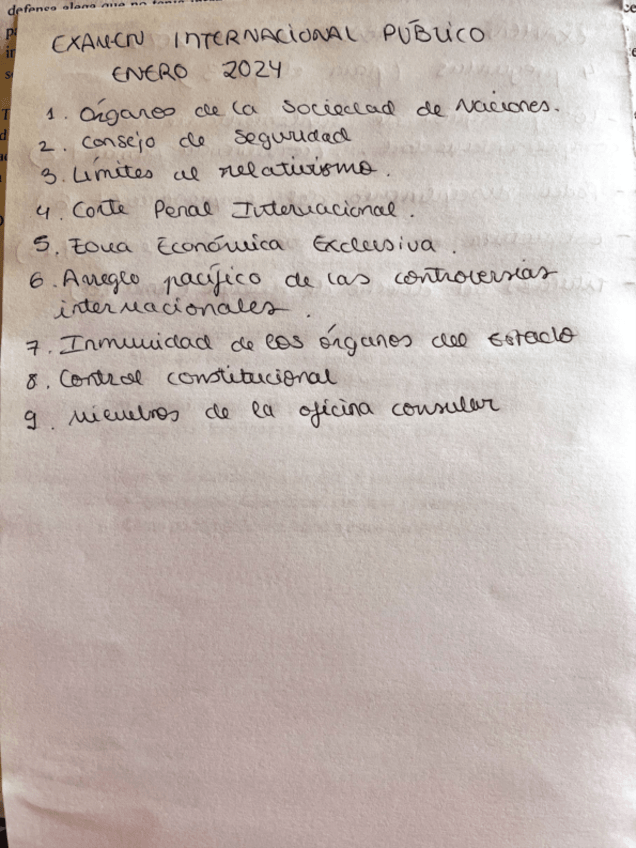 defensa alega que no tenía
EXAMEN INTERNACIONAL PÚBLICO
ENERO 2024
1. Órganos de la Sociedad de Naciones.
2. Consejo de Seguridad
3. Límites al relativismo.
4. Corte Penal Internacional.
5. Zona Económica Exclusiva.
6. Arreglo pacífico de las controversias
internacionales.
7. Inmunidad de los órganos del Estado
8. Control constitucional
9. Miembros de la oficina consular